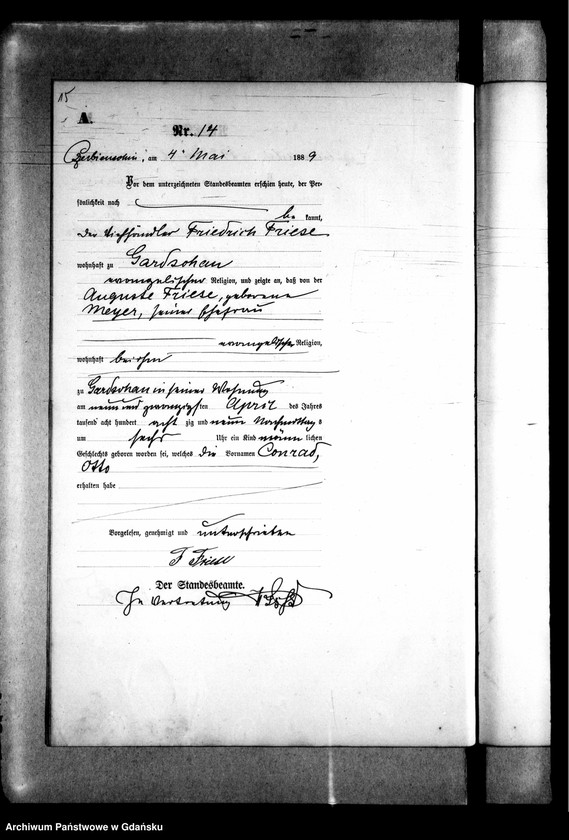 15
A.
Nr. 14
am 4. Mai 1889
Vor dem unterzeichneten Standesbeamten erschien heute, der Per-
sönlichkeit nach
be kannt,
der Viehhändler Friedrich Friese
wohnhaft zu Gardschau
evangelischer Religion, und zeigte an, daß von der
Auguste Friese, geborene
Meyer, seiner Ehefrau
evangelischer Religion,
wohnhaft bei ihm
zu Gardschau in seiner Wohnung
am neun und zwanzigsten April des Jahres
tausend acht hundert acht zig und neun Nachmittags
um sechs Uhr ein Kind männ lichen
Geschlechts geboren worden sei, welches die Vornamen Conrad,
Otto
erhalten habe
Vorgelesen, genehmigt und unterschrieben
F Friese
Der Standesbeamte.
In Vertretung
Archiwum Państwowe w Gdańsku